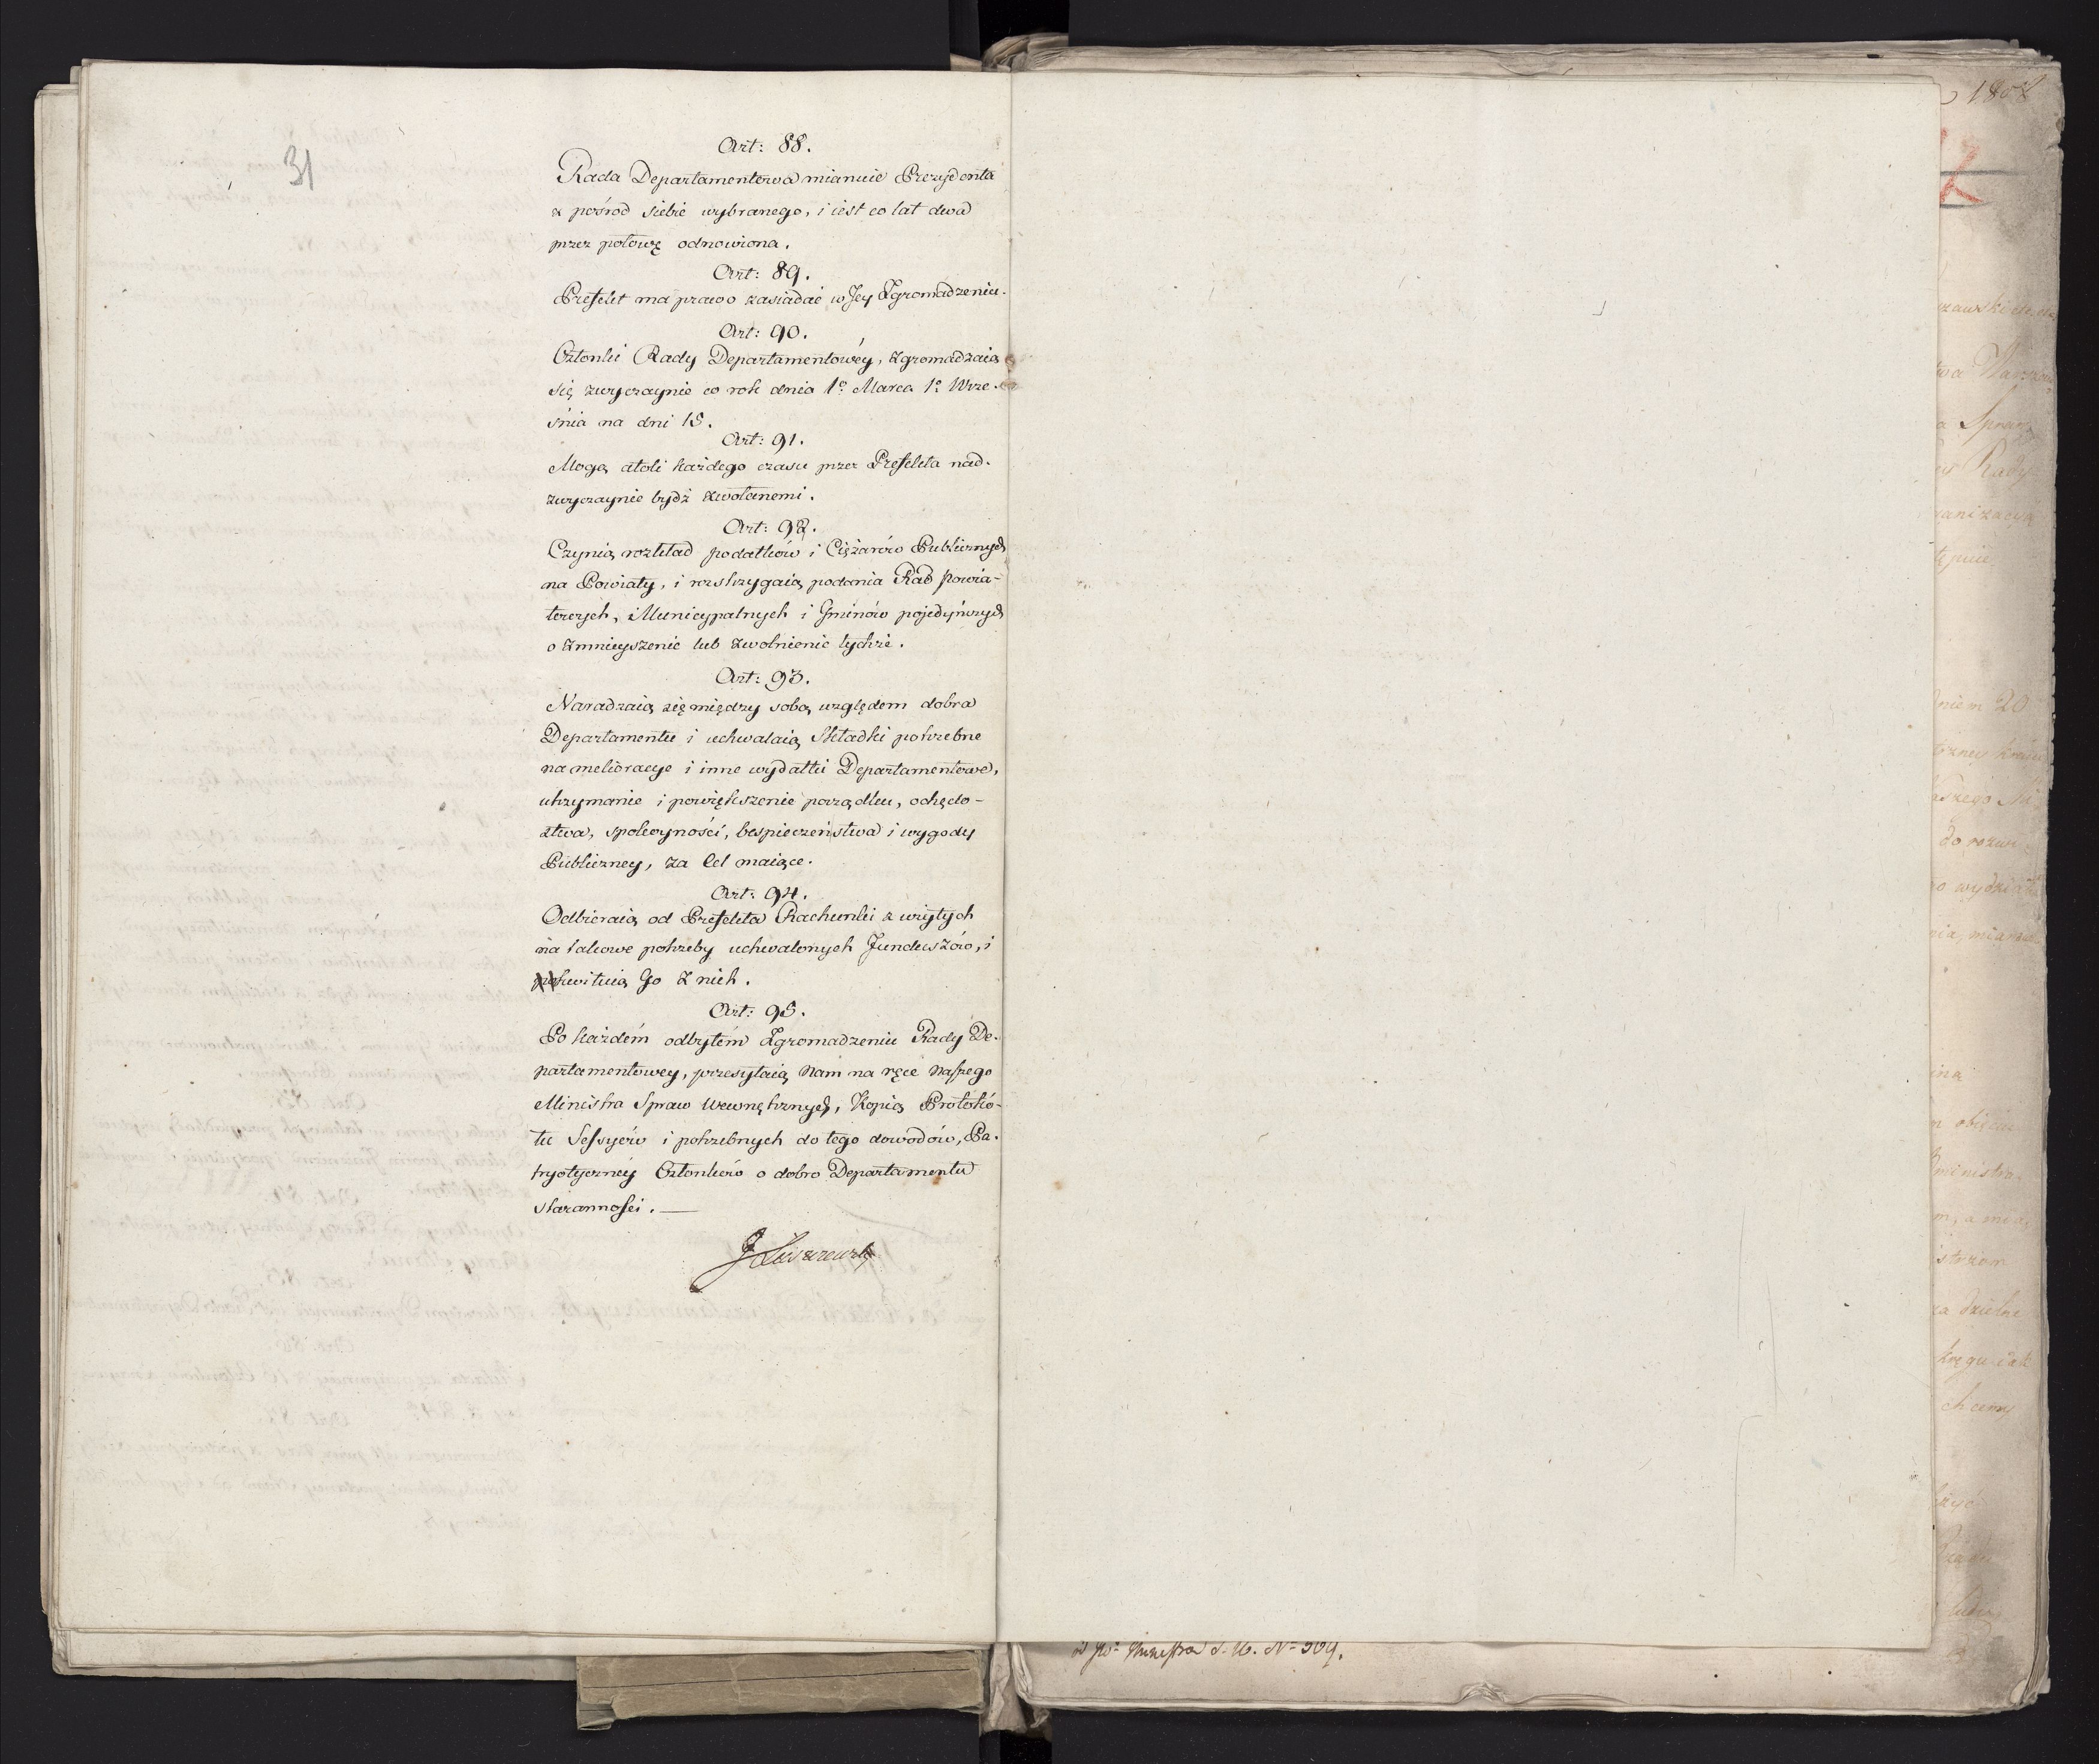 31
Art: 88.
Rada Departamentowa mianuie Prezydenta
z pośrod siebie wybranego, i iest co lat dwa
przez połowę odnowiona.
Art: 89.
Prefekt ma prawo zasiadać w Jey Zgromadzeniu.
Art: 90.
Członki Rady Departamentowéy, zgromadzaią
się zwyczaynie co rok dnia 1º Marca 1º Wrze-
śnia na dni 15.
Art: 91.
Mogą atoli każdego czasu przez Prefekta nad-
zwyczaynie bydź zwołanemi.
Art: 92.
Czynią rozkład podatków i Ciężarów Publicznych
na Powiaty, i rozstrzygaią podania Rad powia-
towych, Municypalnych i Gminów pojedyńczych
o zmnieyszenie lub zwolnienie tychże.
Art: 93.
Naradzaią się między sobą względem dobra
Departamentu i uchwalaią Składki potrzebne
na melioracye i inne wydatki Departamentowe,
utrzymanie i powiększenie porządku, ochędo-
ztwa, spokoyności, bespieczeństwa i wygody
Publiczney, za Cel maiące.
Art: 94.
Odbieraią od Prefekta Rachunki z użytych
na takowe potrzeby uchwalonych Funduszów, i
kwituią Go z nich.
Art: 95.
Po każdém odbytém Zgromadzeniu Rady De-
partamentowey, przesyłaią Nam na ręce Naszego
Ministra Spraw Wewnętrznych, Kopią Protokó-
łu Sessyów i potrzebnych do tego dowodów, Pa-
tryotycznéy Członków o dobro Departamentu
starannosci.
J Łuszczewski
1808
Rady
niem 20
chcemy
Ministra S. W. Nº 509.